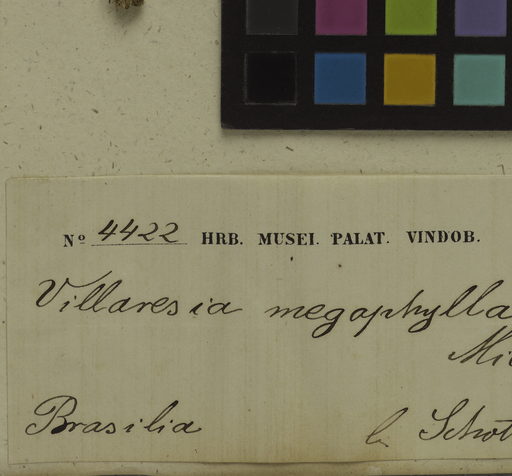 Nº 4422 HRB. MUSEI. PALAT. VINDOB.
Villaresia megaphylla
Brasilia